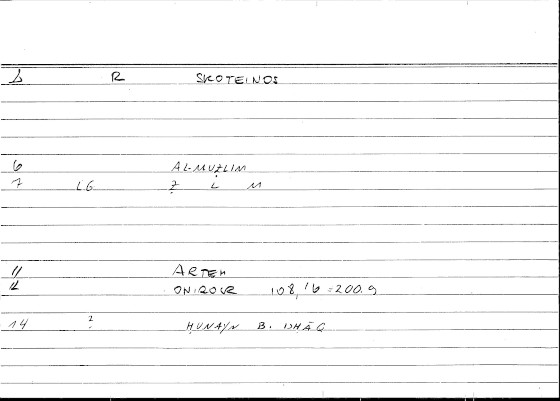 1 R SKOTEINOS
6 AL-MUẒLIM
7 LG Ẓ L M
11 ARTEM
12 ONIROCR 108,16=200.9
14 ? ḤUNAYN B. ISḤĀQ